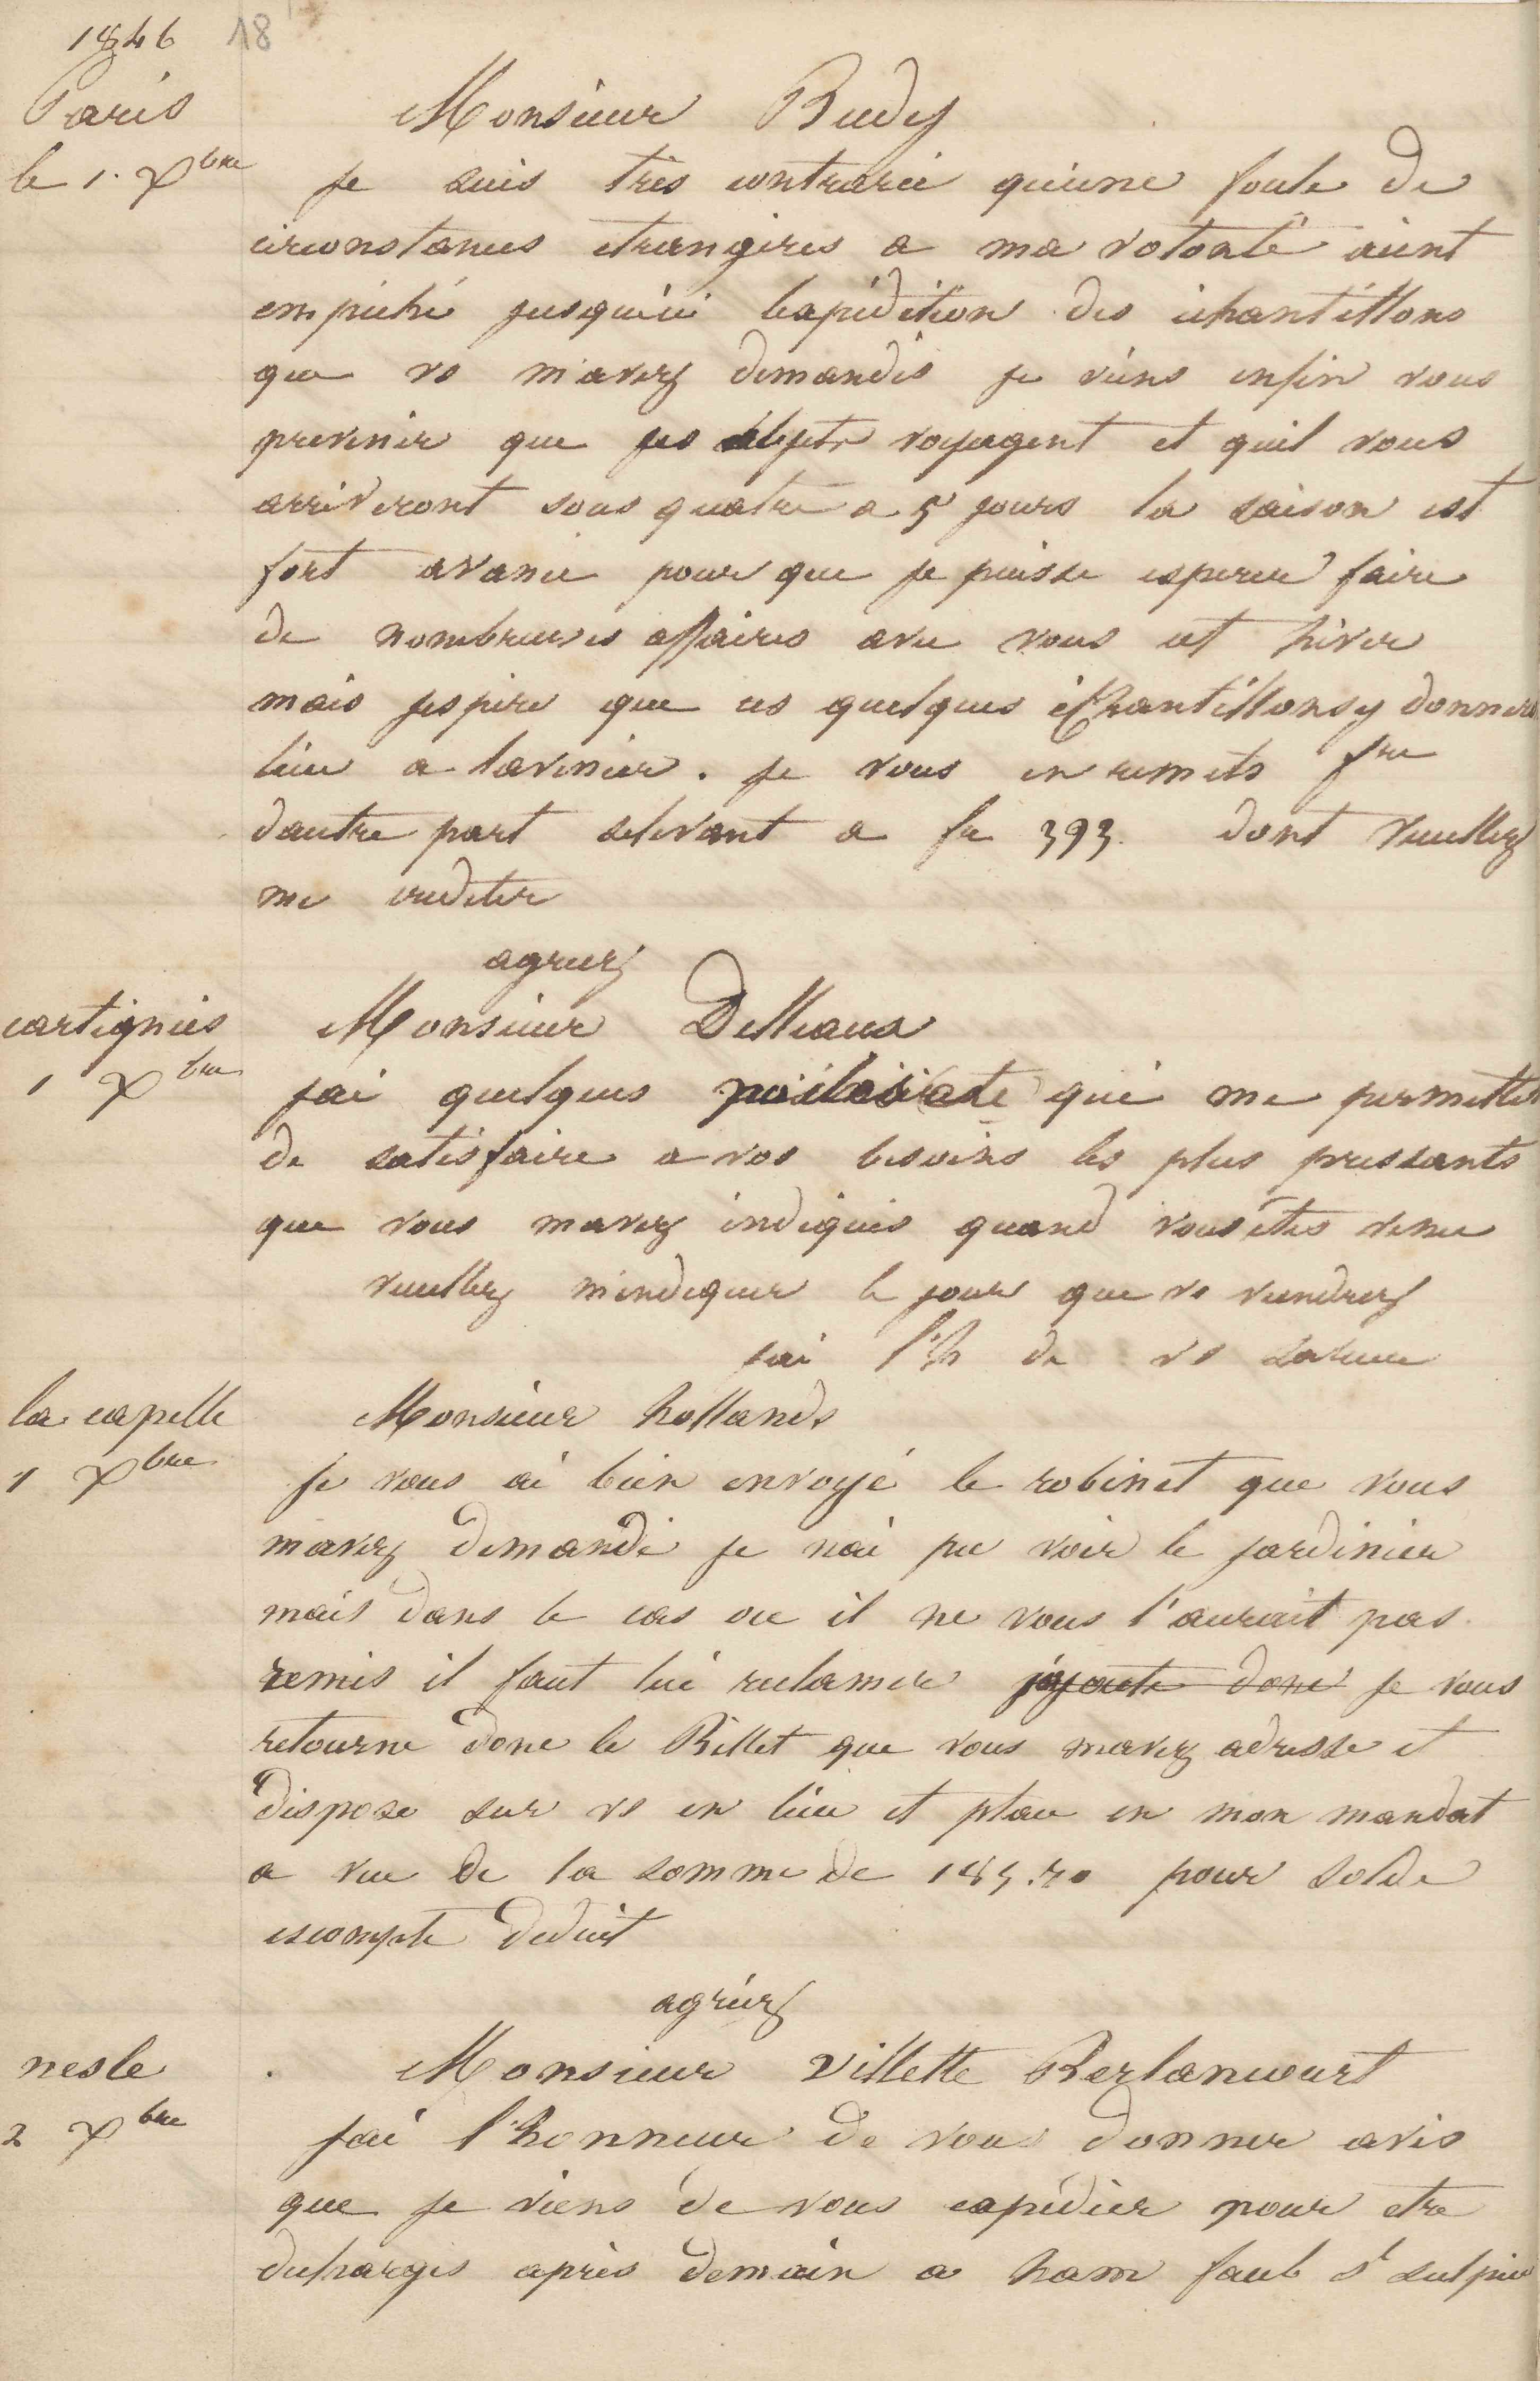 1846 18
Paris
le 1. Xbre
Monsieur Budy
je suis très contrarié qu'une foule de
circonstances etrangères a ma volonté aient
empêché jusqu'ici l'expédition des échantillons
que vs m'avez demandés je viens enfin vous
prevenir que voyagent et quil vous
arriveront sous quatre a 5 jours la saison est
fort avancé pour que je puisse esperer faire
de nombreuses affaires avec vous cet hiver
mais jespère que ces quelques échantillons y donnera
lieu a lavenir. je vous en remets fre
dautre part selevant a fr 393. dont veuillez
me crediter
agreez
cartignies
1 Xbre
Monsieur Delleaux
jai quelques qui me permettes
de satisfaire a vos besoins les plus pressants
que vous mavez indiqués quand vous êtes venu
veuillez mindiquer le jour que vs viendrez
jai l'h de vs saluer
la capelle
1 Xbre
Monsieur hollande
je vous ai bien envoyé le robinet que vous
mavez demandé je nai pu voir le jardinier
mais dans le cas ou il ne vous l'aurait pas
remis il faut lui reclamer j'ajoute donc je vous
retourne donc le Billet que vous mavez adresse et
dispose sur vs en lieu et place en mon mandat
a vue de la somme de 145.70 pour solde
escompte deduit
agréez
nesle
2 Xbre
Monsieur Villette Berlancourt
jai l'honneur de vous donner avis
que je viens de vous expédier pour etre
dechargés après demain a ham faub St sulpice